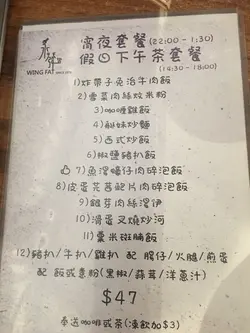 WING FAT
宵夜套餐(22:00 - 1:30)
假日下午茶套餐
(14:30 - 18:00)
1)炸帶子免治牛肉飯
2)雪菜肉絲炆米粉
3)咖喱雞飯
4)鮮蚝炒麵
5)西式炒飯
6)椒鹽豬扒飯
7)魚滑蠔仔肉碎泡飯
8)皮蛋芫茜魷片肉碎泡飯
9)銀芽肉絲滑伊
10)滑蛋叉燒炒河
11)粟米斑腩飯
12)豬扒/牛扒/雞扒 配 腸仔/火腿/煎蛋
配 飯或意粉(黑椒/蒜茸/洋蔥汁)
$47
奉送咖啡或茶(凍飲加$3)